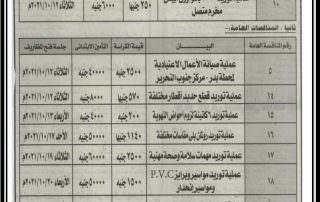 ١٠ مخرم متصل ٢٥٠ جنيه ٦٠٠٠ جنيه الثلاثاء ٢٠٢١/١٠/١٢م
ثانيا : المناقصات العامة:
رقم المناقصة العامة البيان قيمة الكراسة التأمين الابتدائى جلسة فتح المظاريف
٥ عملية صيانة الأعمال الاعتيادية لمحطة بدر - مركز جنوب التحرير ٢٥٠٠ جنيه ٤٠٠٠٠ جنيه الثلاثاء ٢٠٢١/١٠/١٢م
١٤ عملية توريد قطع حديد أقطار مختلفة ٥٧٠ جنيه ٨٠٠٠ جنيه الثلاثاء ٢٠٢١/١٠/١٢م
١٥ عملية توريد ٦ كابينة لزوم أحواض التهوية ٢٥٠ جنيه ٥٠٠٠ جنيه الأربعاء ٢٠٢١/١٠/١٣م
١٦ عملية توريد رولمان بلى مقاسات مختلفة ١١٤٠ جنيه ٥٠٠٠٠ جنيه الأحد ٢٠٢١/١٠/١٧م
١٧ عملية توريد مهمات سلامة وصحة مهنية ٢٥٠٠ جنيه ٦٠٠٠٠ جنيه الثلاثاء ٢٠٢١/١٠/١٩م
١٨ عملية توريد مواسير وبرابخ P.V.C ومواسير انحدار ١٥٠٠ جنيه ٥٠٠٠٠ جنيه الأربعاء ٢٠٢١/١٠/٢٠م